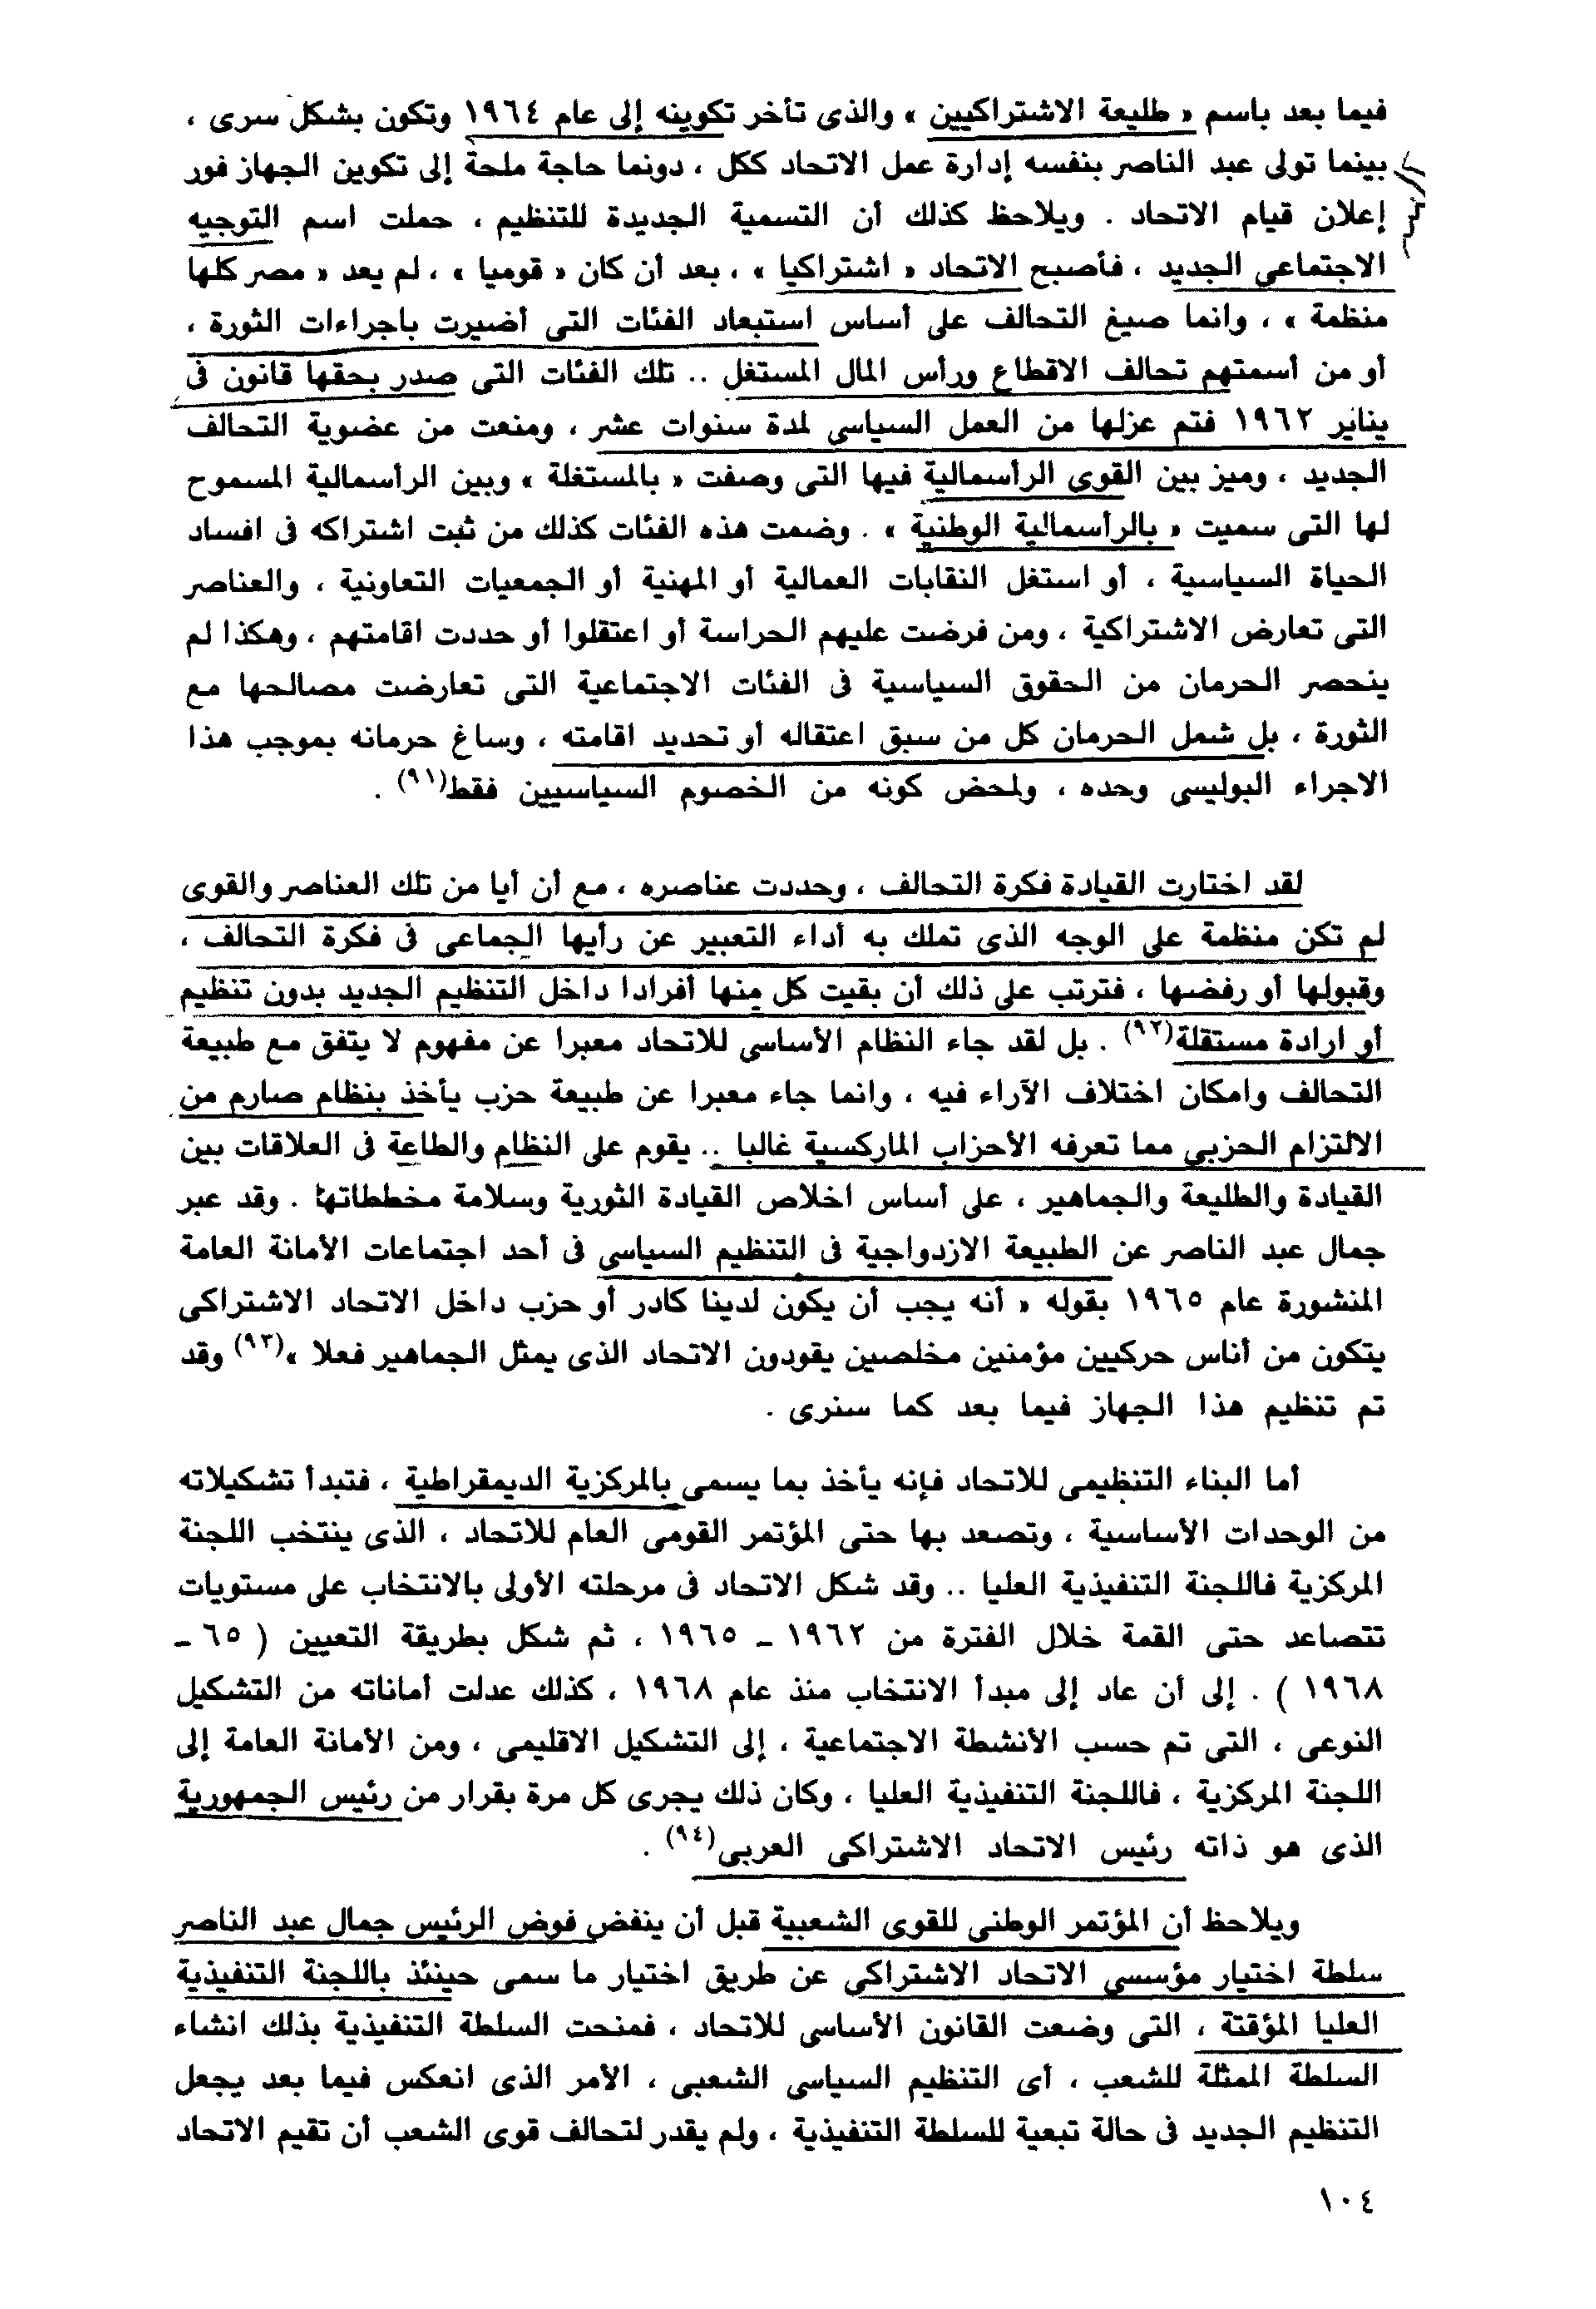 فيما بعد باسم « طليعة الاشتراكيين » والذى تأخر تكوينه إلى عام ١٩٦٤ وتكون بشكل سرى ،
بينما تولى عبد الناصر بنفسه إدارة عمل الاتحاد ككل ، دونما حاجة ملحة إلى تكوين الجهاز فور
إعلان قيام الاتحاد . ويلاحظ كذلك أن التسمية الجديدة للتنظيم ، حملت اسم التوجيه
الاجتماعى الجديد ، فأصبح الاتحاد « اشتراكيا » ، بعد أن كان « قوميا » ، لم يعد « مصر كلها
منظمة » ، وانما صيغ التحالف على أساس استبعاد الفئات التى أضيرت باجراءات الثورة ،
أو من أسمتهم تحالف الاقطاع ورأس المال المستغل .. تلك الفئات التى صدر بحقها قانون فى
يناير ١٩٦٢ فتم عزلها من العمل السياسى لمدة سنوات عشر ، ومنعت من عضوية التحالف
الجديد ، وميز بين القوى الرأسمالية فيها التى وصفت « بالمستغلة » وبين الرأسمالية المسموح
لها التى سميت « بالرأسمالية الوطنية » . وضمت هذه الفئات كذلك من ثبت اشتراكه فى افساد
الحياة السياسية ، أو استغل النقابات العمالية أو المهنية أو الجمعيات التعاونية ، والعناصر
التى تعارض الاشتراكية ، ومن فرضت عليهم الحراسة أو اعتقلوا أو حددت اقامتهم ، وهكذا لم
ينحصر الحرمان من الحقوق السياسية فى الفئات الاجتماعية التى تعارضت مصالحها مع
الثورة ، بل شمل الحرمان كل من سبق اعتقاله أو تحديد اقامته ، وساغ حرمانه بموجب هذا
الاجراء البوليسى وحده ، ولمحض كونه من الخصوم السياسيين فقط(٩١) .
لقد اختارت القيادة فكرة التحالف ، وحددت عناصره ، مع أن أيا من تلك العناصر والقوى
لم تكن منظمة على الوجه الذى تملك به أداء التعبير عن رأيها الجماعى فى فكرة التحالف ،
وقبولها أو رفضها ، فترتب على ذلك أن بقيت كل منها أفرادا داخل التنظيم الجديد بدون تنظيم
أو ارادة مستقلة(٩٢) . بل لقد جاء النظام الأساسى للاتحاد معبرا عن مفهوم لا يتفق مع طبيعة
التحالف وامكان اختلاف الآراء فيه ، وانما جاء معبرا عن طبيعة حزب يأخذ بنظام صارم من
الالتزام الحزبى مما تعرفه الأحزاب الماركسية غالبا .. يقوم على النظام والطاعة فى العلاقات بين
القيادة والطليعة والجماهير ، على أساس اخلاص القيادة الثورية وسلامة مخططاتها . وقد عبر
جمال عبد الناصر عن الطبيعة الازدواجية فى التنظيم السياسى فى أحد اجتماعات الأمانة العامة
المنشورة عام ١٩٦٥ بقوله « أنه يجب أن يكون لدينا كادر أو حزب داخل الاتحاد الاشتراكى
يتكون من أناس حركيين مؤمنين مخلصين يقودون الاتحاد الذى يمثل الجماهير فعلا »(٩٣) وقد
تم تنظيم هذا الجهاز فيما بعد كما سنرى .
أما البناء التنظيمى للاتحاد فإنه يأخذ بما يسمى بالمركزية الديمقراطية ، فتبدأ تشكيلاته
من الوحدات الأساسية ، وتصعد بها حتى المؤتمر القومى العام للاتحاد ، الذى ينتخب اللجنة
المركزية فاللجنة التنفيذية العليا .. وقد شكل الاتحاد فى مرحلته الأولى بالانتخاب على مستويات
تتصاعد حتى القمة خلال الفترة من ١٩٦٢ ــ ١٩٦٥ ، ثم شكل بطريقة التعيين ( ٦٥ ــ
١٩٦٨ ) . إلى أن عاد إلى مبدأ الانتخاب منذ عام ١٩٦٨ ، كذلك عدلت أماناته من التشكيل
النوعى ، التى تم حسب الأنشطة الاجتماعية ، إلى التشكيل الاقليمى ، ومن الأمانة العامة إلى
اللجنة المركزية ، فاللجنة التنفيذية العليا ، وكان ذلك يجرى كل مرة بقرار من رئيس الجمهورية
الذى هو ذاته رئيس الاتحاد الاشتراكى العربى(٩٤) .
ويلاحظ أن المؤتمر الوطنى للقوى الشعبية قبل أن ينفض فوض الرئيس جمال عبد الناصر
سلطة اختيار مؤسسى الاتحاد الاشتراكى عن طريق اختيار ما سمى حينئذ باللجنة التنفيذية
العليا المؤقتة ، التى وضعت القانون الأساسى للاتحاد ، فمنحت السلطة التنفيذية بذلك انشاء
السلطة الممثلة للشعب ، أى التنظيم السياسى الشعبى ، الأمر الذى انعكس فيما بعد يجعل
التنظيم الجديد فى حالة تبعية للسلطة التنفيذية ، ولم يقدر لتحالف قوى الشعب أن تقيم الاتحاد
١٠٤